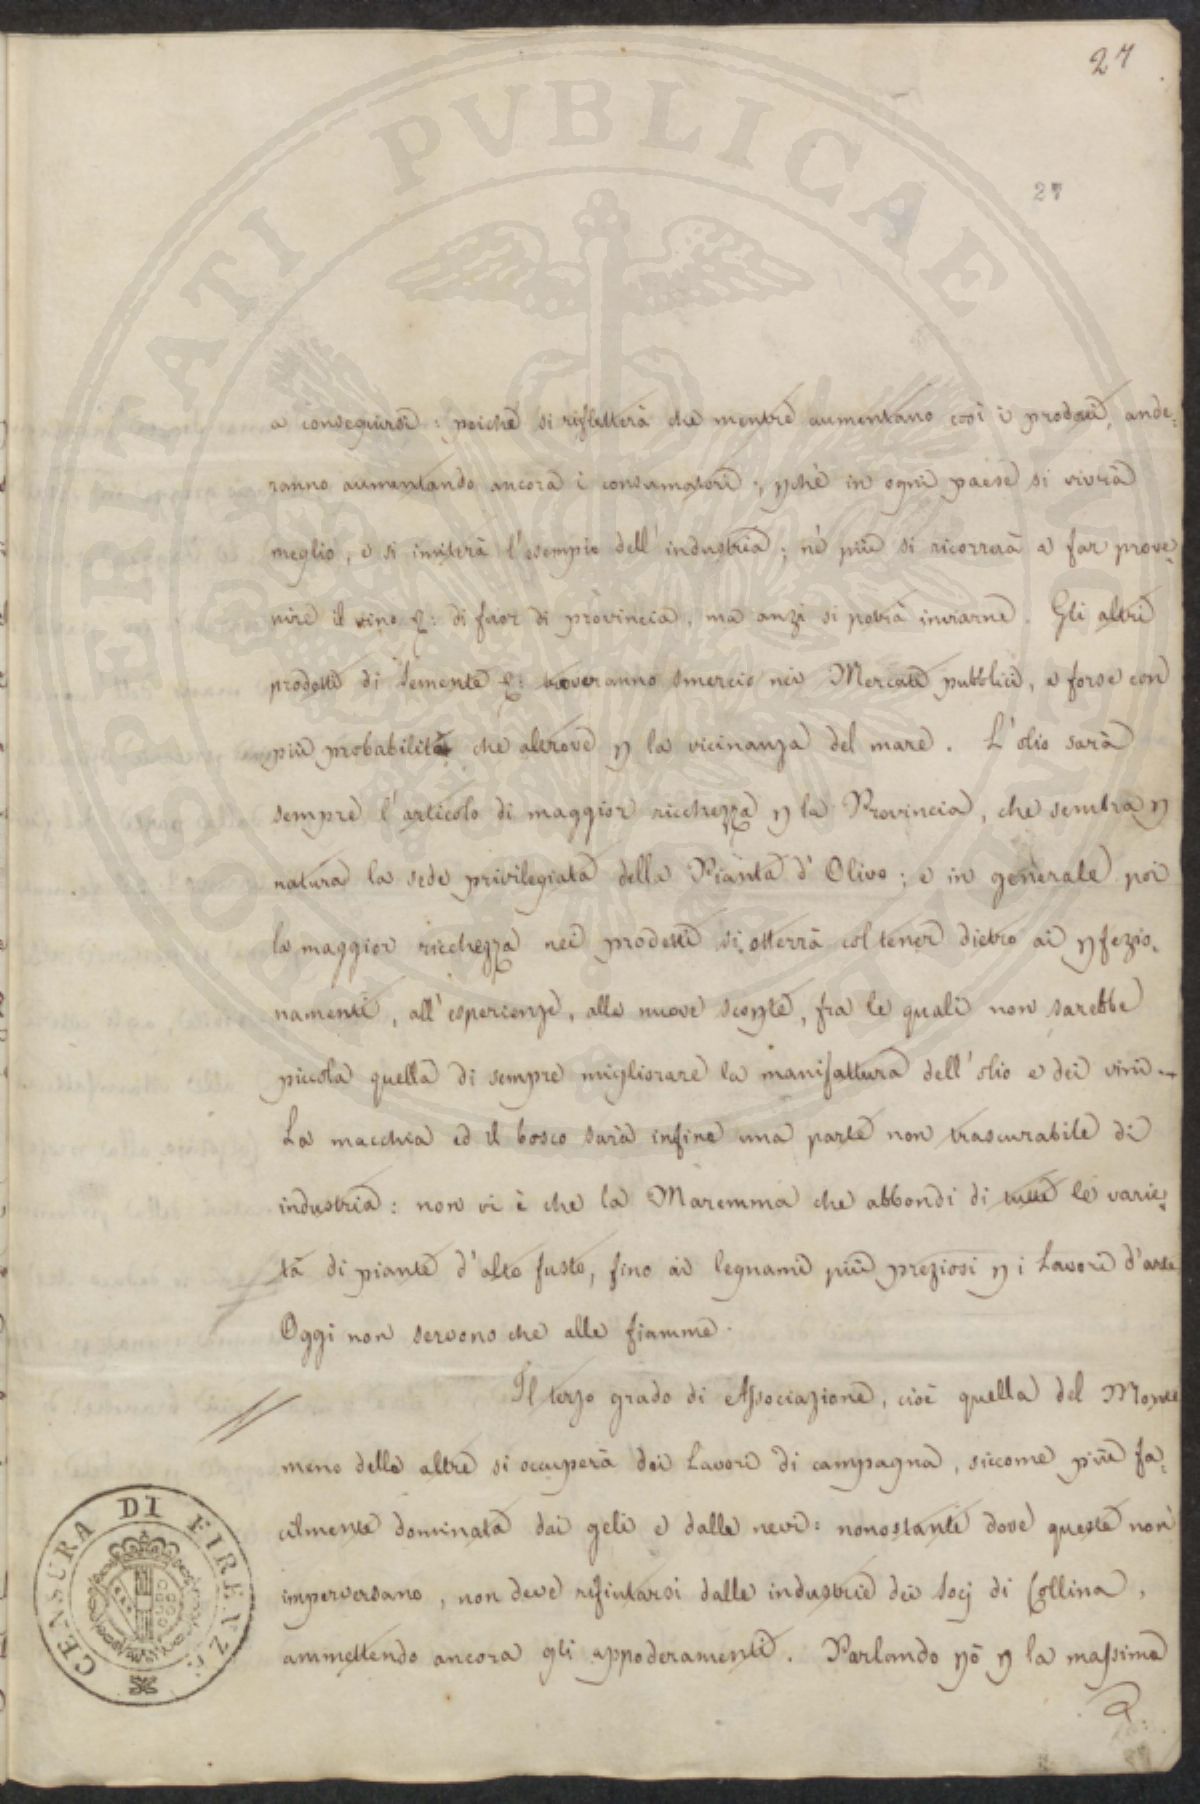 27
27
a conseguirsi: poichè si rifletterà che mentre aumentano così i prodotti, ande=
ranno aumentando ancora i consumatori; pchè in ogni paese si vivrà
meglio, e si imiterà l'esempio dell'industria; nè più si ricorrerà a far prove=
nire il vino &: di fuor di provincia, ma anzi si potrà inviarne. Gli altri
prodotti di Semente &: troveranno smercio nei Mercati pubblici, e forse con
più probabilità che altrove p la vicinanza del mare. L'olio sarà
sempre l'articolo di maggior ricchezza p la Provincia, che sembra p
natura la sede privilegiata della Pianta d'Olivo; e in generale poi
la maggior ricchezza nei prodotti si otterrà col tener dietro ai pfezio=
namenti, all'esperienze, alle nuove scopte, fra le quali non sarebbe
piccola quella di sempre migliorare la manifattura dell'olio e dei vini -
La macchia ed il bosco sarà infine una parte non trascurabile di
industria: non vi è che la Maremma che abbondi di tutte le varie=
tà di piante d'alto fusto, fino ai legnami più preziosi p i Lavori d'arte
Oggi non servono che alle fiamme.
Il terzo grado di Associazione, cioè quella del Monte
meno delle altre si occuperà dei Lavori di campagna, siccome più fa=
cilmente dominata dai geli e dalle nevi: nonostante dove queste non
imperversano, non deve rifiutarsi dalle industrie dei Socj di Collina,
ammettendo ancora gli appoderamenti. Parlando pò p la massima
CENSURA DI FIRENZE
PROSPERITATI PUBLICAE